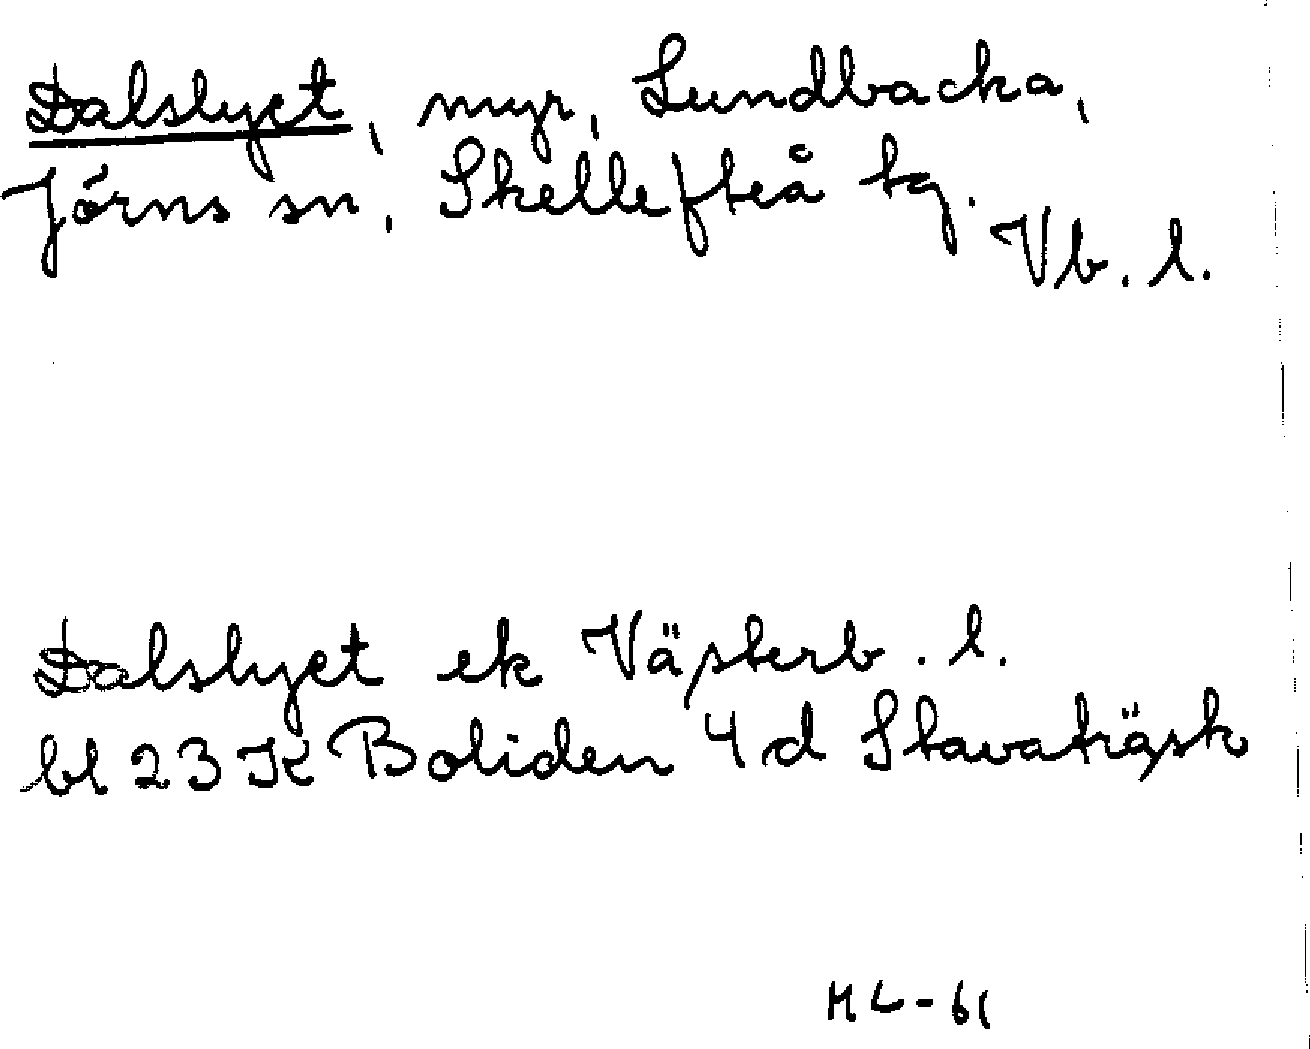 Dalslyet, myr, Lundbacka,
Jörns sn, Skellefteå tg.
Vb. l.
Dalslyet ek Västerb. l.
bl 23 K Boliden 4 d Stavaträsk
ML-61